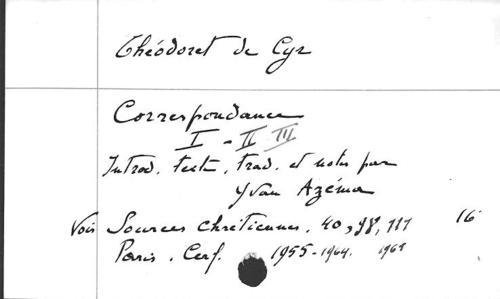 Théodoret de Cyr
Correspondance
I - II III
Introd. texte, trad. et notes par
Yvan Azéma
Vois Sources chrétiennes. 40, 98, 111 16
Paris. Cerf. 1955-1964. 1965